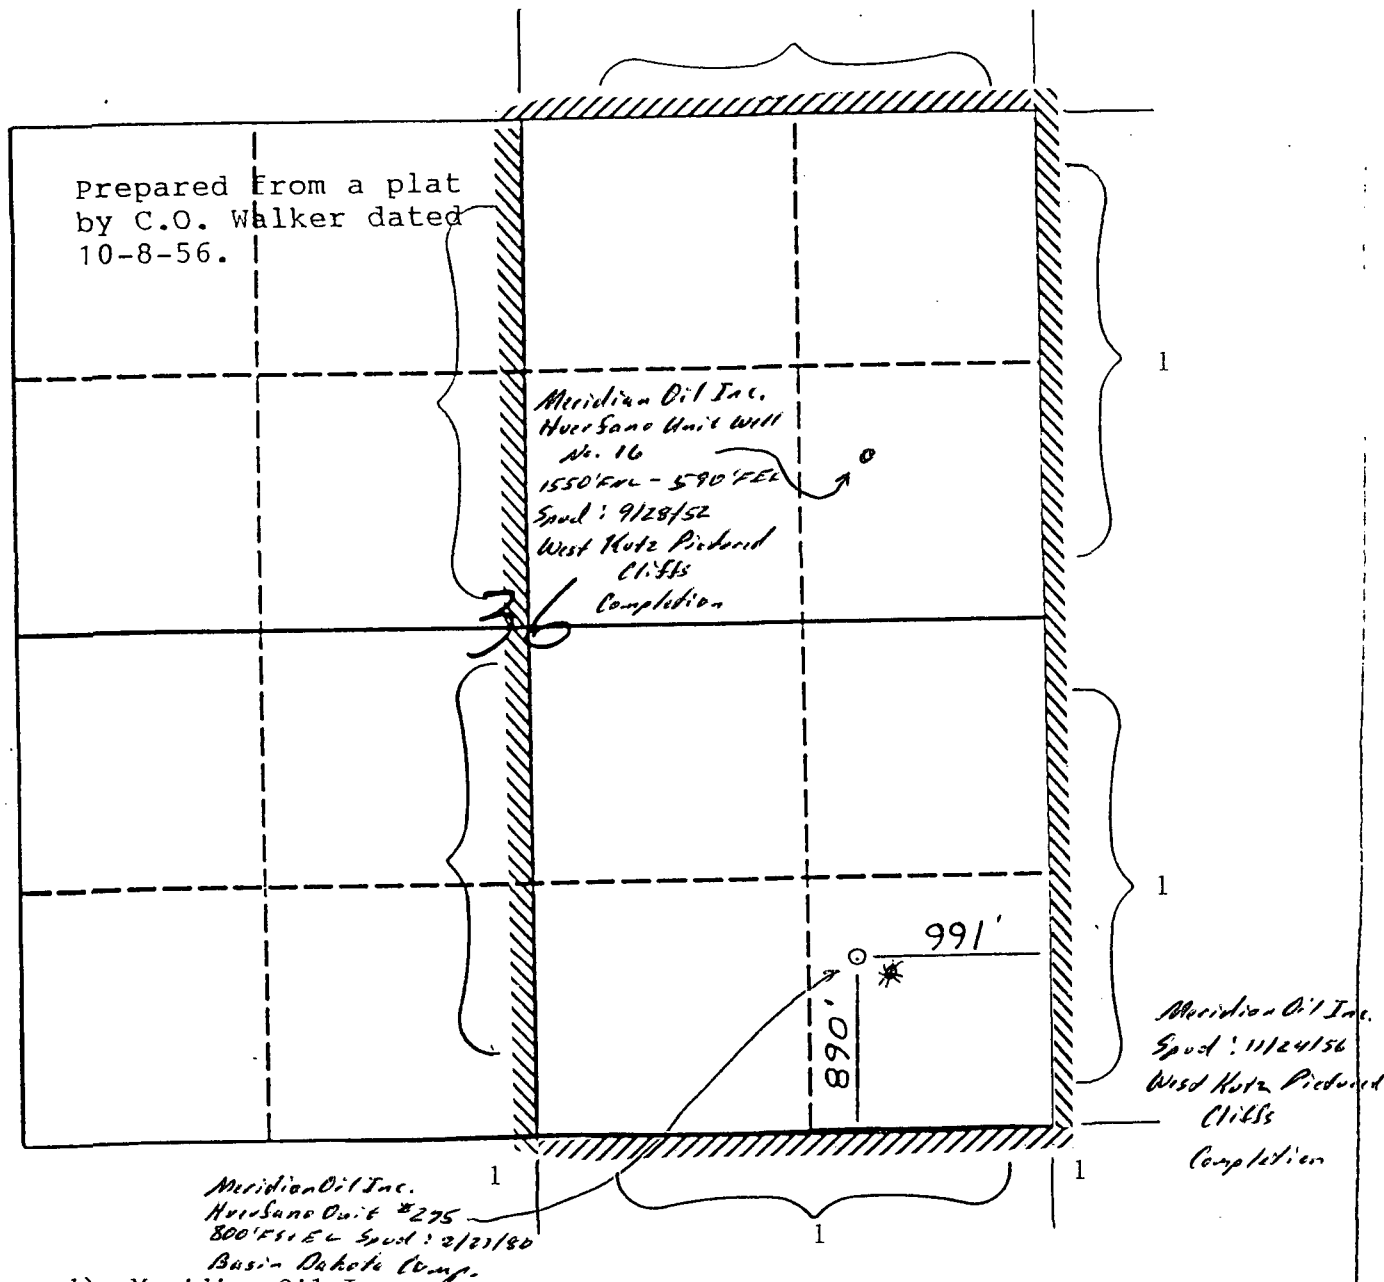 Prepared from a plat
by C.O. Walker dated
10-8-56.
1
Meridian Oil Inc.
Huerfano Unit Well
No. 16
1550'FNL - 590'FEL
Spud: 9/28/52
West Kutz Pictured
Cliffs
Completion
36
1
991'
890'
Meridian Oil Inc.
Spud: 11/24/56
West Kutz Pictured
Cliffs
Completion
1
1
1
Meridian Oil Inc.
Huerfano Unit #275
800'FS&EL Spud: 2/23/80
Basin Dakota Comp.
Meridian Oil Inc